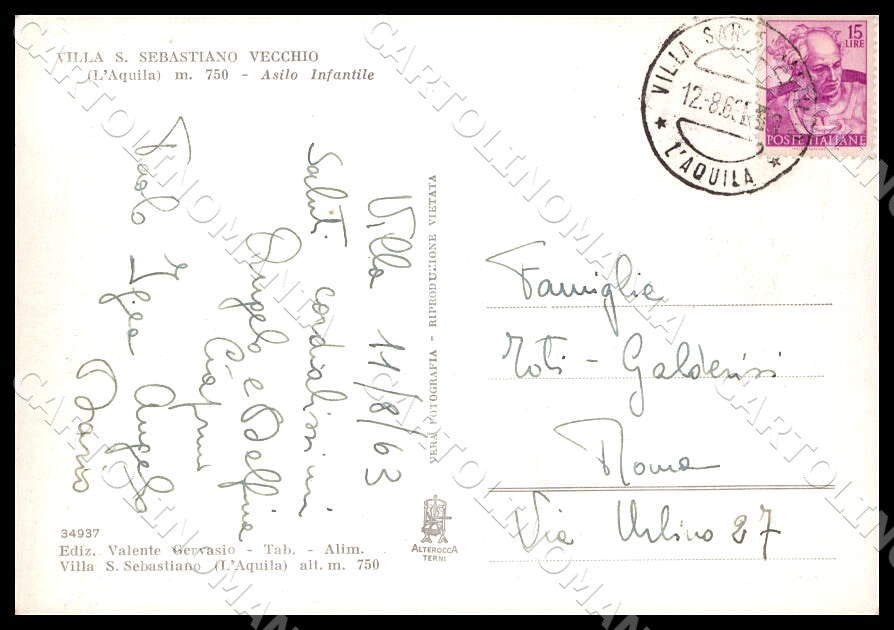 VILLA S. SEBASTIANO VECCHIO
(L'Aquila) m. 750 - Asilo Infantile
Villa 11/8/63
Saluti cordialissimi
Angelo e Delfina
Paolo
Angelo
34937
Ediz. Valente Gervasio - Tab. - Alim.
Villa S. Sebastiano (L'Aquila) alt. m. 750
VERA FOTOGRAFIA - RIPRODUZIONE VIETATA
ALTEROCCA
TERNI
VILLA SAN
12-8.6
L'AQUILA
15
LIRE
POSTE ITALIANE
Famiglia
Toti - Galderisi
Roma
Via Urbino 27
CARTOLINOMANIA